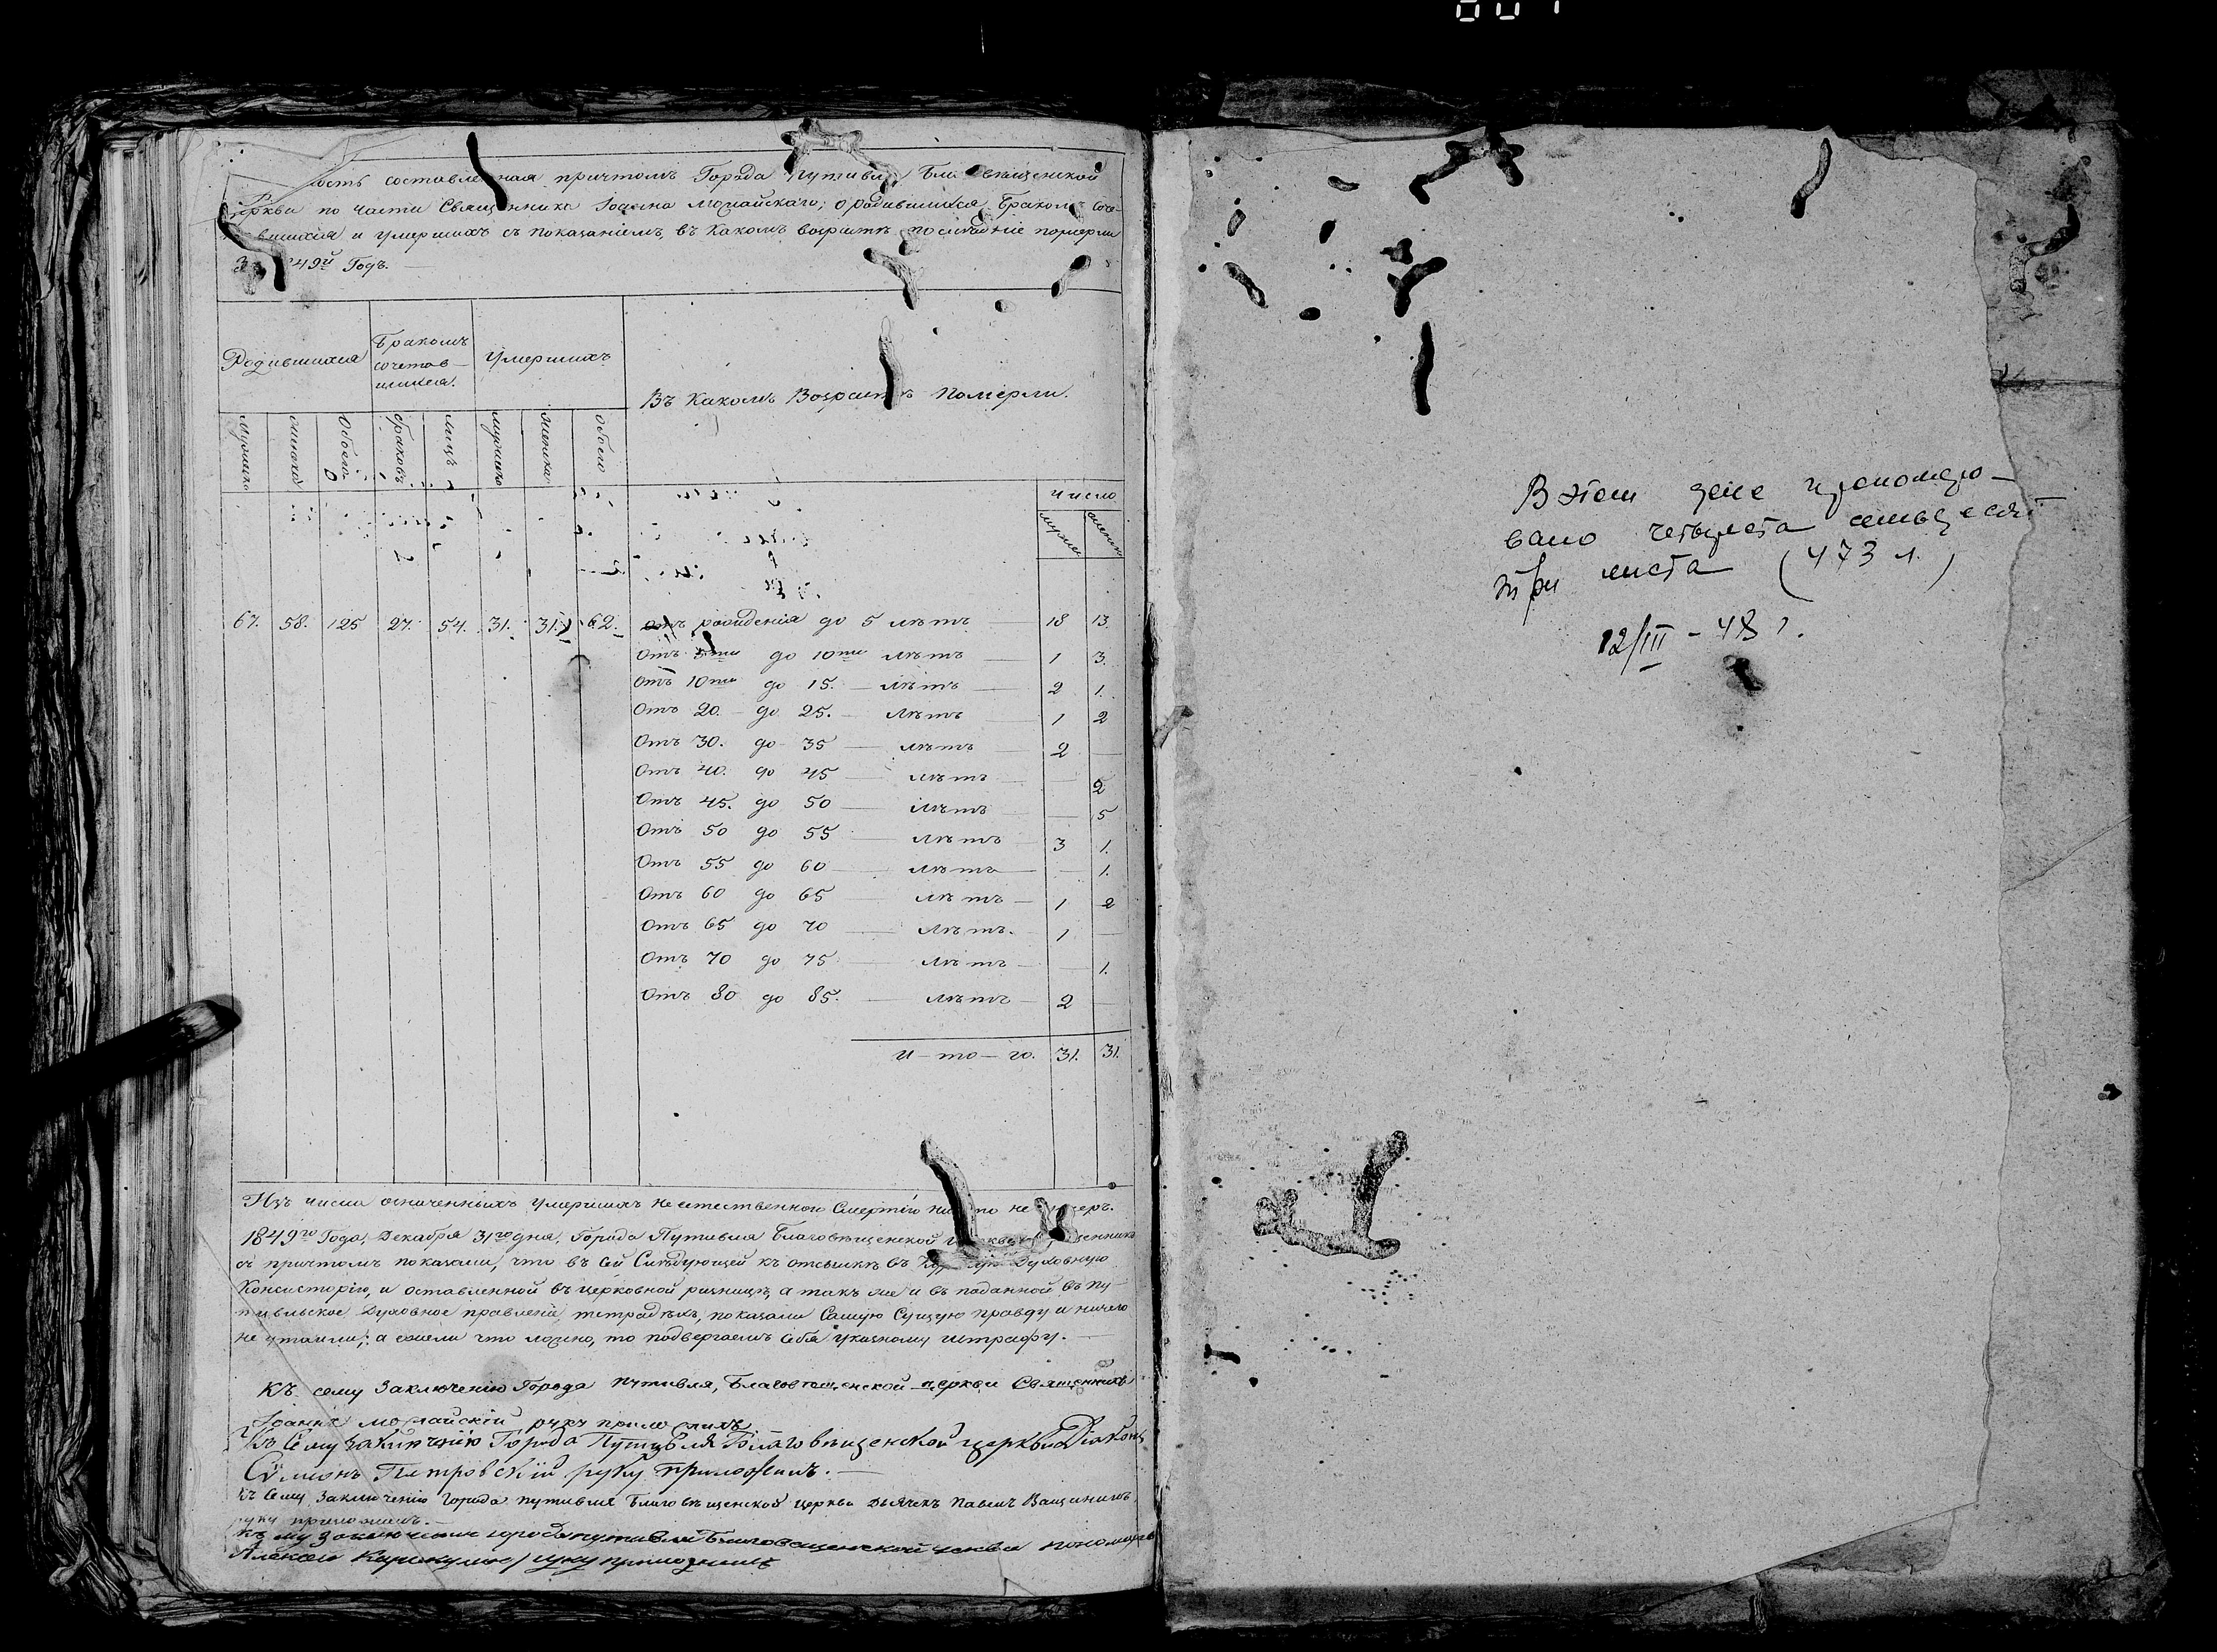 ость составленная причтомъ Города Путивля Благовѣщенской
Церкви по части Священника Іоанна Можайскаго; о родившихся, Бракомъ соче-
вшихся и умершихъ съ показаніемъ, въ какомъ возрастѣ послѣдніе померли
За 1849й Годъ.
Родившихся
Бракомъ сочетав-шихся.
Умершихъ
Въ Какомъ Возрастѣ Померли.
мужеска женска Обоего браковъ лицъ мужеска женска обоего
число
мужес женск
67. 58. 125 27. 54. 31. 31. 62. отъ рожденія до 5 лѣтъ 18 13.
Отъ 5ти до 10ти лѣтъ — 1 3.
Отъ 10ти до 15. — лѣтъ — 2 1.
Отъ 20. — до 25. — лѣтъ — 1 2
Отъ 30. до 35 — лѣтъ — 2 —
Отъ 40. до 45 — лѣтъ — — 2
Отъ 45. до 50 — лѣтъ — — 5
Отъ 50 до 55 — лѣтъ — 3 1.
Отъ 55 до 60 — лѣтъ — — 1.
Отъ 60 до 65 — лѣтъ — 1 2
Отъ 65 до 70 — лѣтъ. 1 —
Отъ 70 до 75 — лѣтъ — — 1.
Отъ 80 до 85. — лѣтъ — 2 —
И-то-го. 31. 31.
Изъ числа означенныхъ умершихъ неестественною Смертію никто не умеръ.
1849го Года, Декабря 31го дня, Города Путивля Благовѣщенской церкви Священникъ
съ причтомъ показали, что въ сей Слѣдующей къ отсылкѣ въ Курскую Духовную
Консисторію, и оставленной въ церковной ризницѣ, а такъ же и въ поданной въ Пу-
тивльское Духовное правленіе тетрадѣхъ, показали Самую Сущую правду и ничего
не утаили; а ежели что ложно, то подвергаемъ себя указному штрафу. —
Къ сему Заключенію Города Путивля, Благовѣщенской церкви Священникъ
Іоаннъ Можайскій руку приложилъ
Къ Сему заключенію Города Путивля Благовѣщенской церкви Діаконъ
Сѵмеонъ Петровскій руку приложилъ. —
Къ Сему Заключенію Города Путивля Благовѣщенской церкви Дьячекъ Павелъ
руку приложилъ. —
Къ сему заключенію города путивля Благовещенской церкви пономарь
Алексей руку приложилъ
В этом деле пронумеро-
вано четыреста семьдесят
три листа (473 л.)
12/III - 48 г.